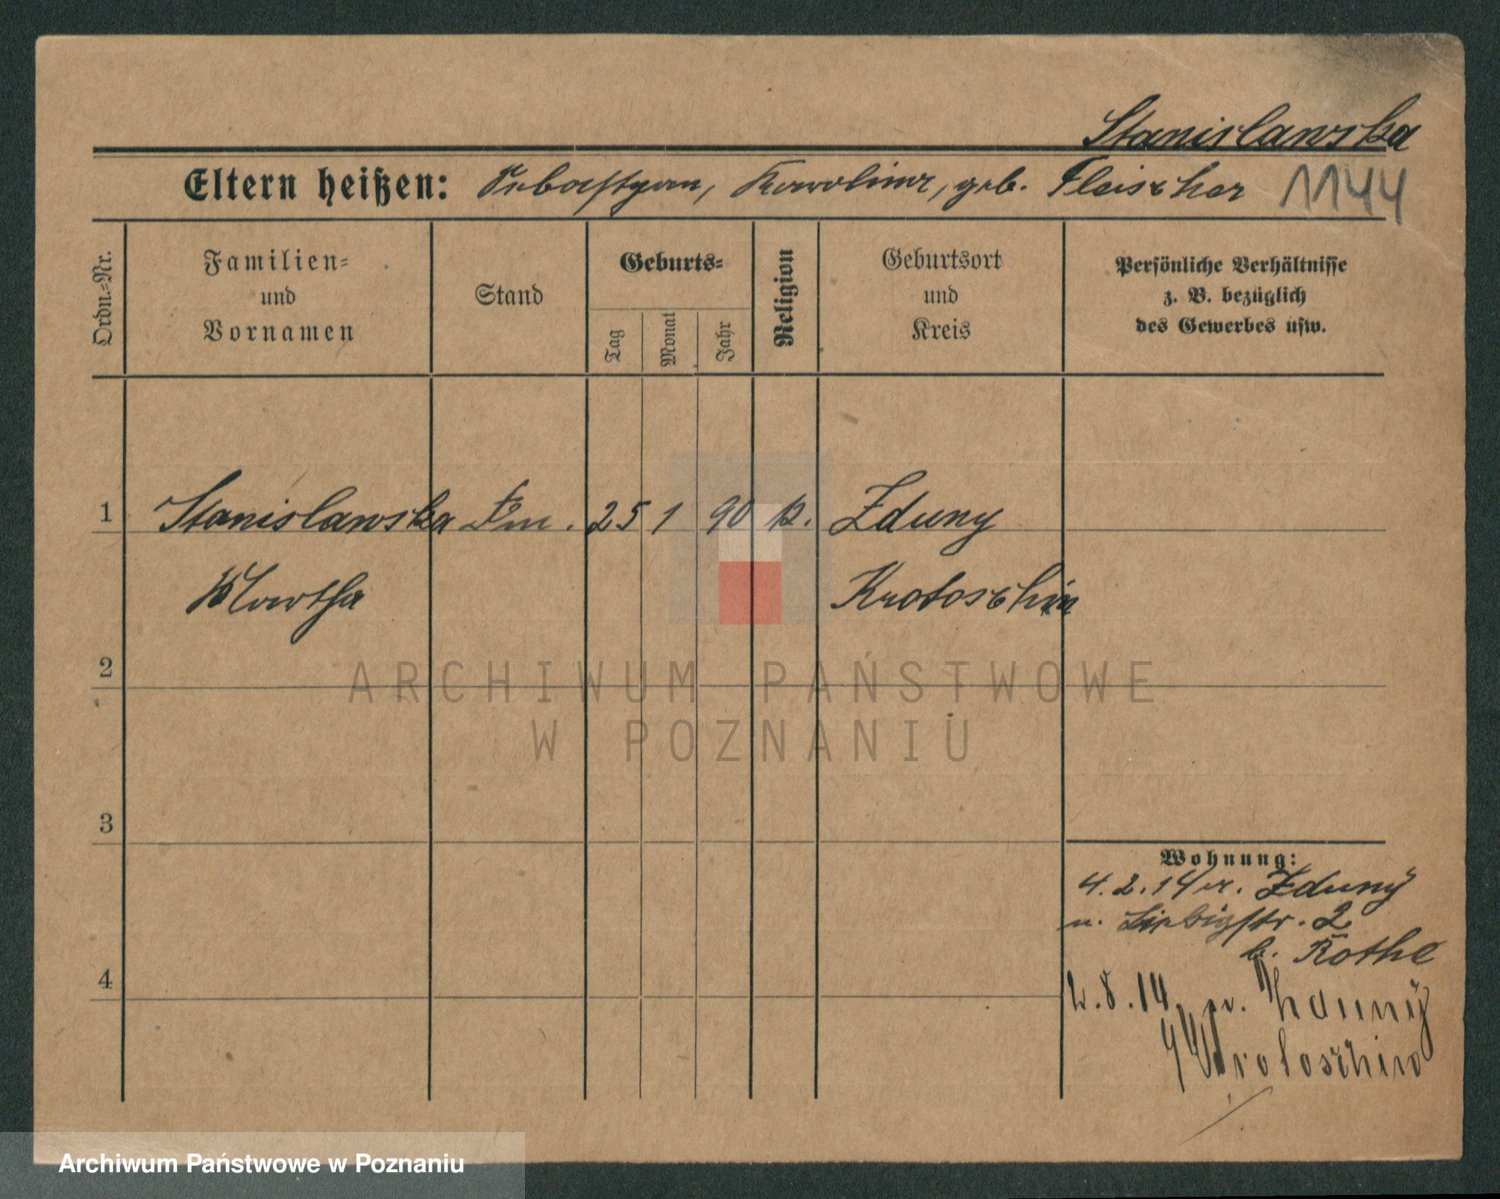 Stanislawska
Eltern heißen: Sebastyan, Karoline, geb. Fleischer 1144
Ordn.-Nr.
Familien-
und
Vornamen
Stand
Geburts-
Tag
Monat
Jahr
Religion
Geburtsort
und
Kreis
Persönliche Verhältnisse
z. B. bezüglich
des Gewerbes usw.
1 Stanislawska 25 1 90 k. Zduny
Martha Krotoschin
2
ARCHIWUM PAŃSTWOWE
W POZNANIU
3
Wohnung:
4.2.14 v. Zduny
n. Liebigstr. 2
b. Rothe
4
2.8.14. Zduny
Krotoschin
Archiwum Państwowe w Poznaniu